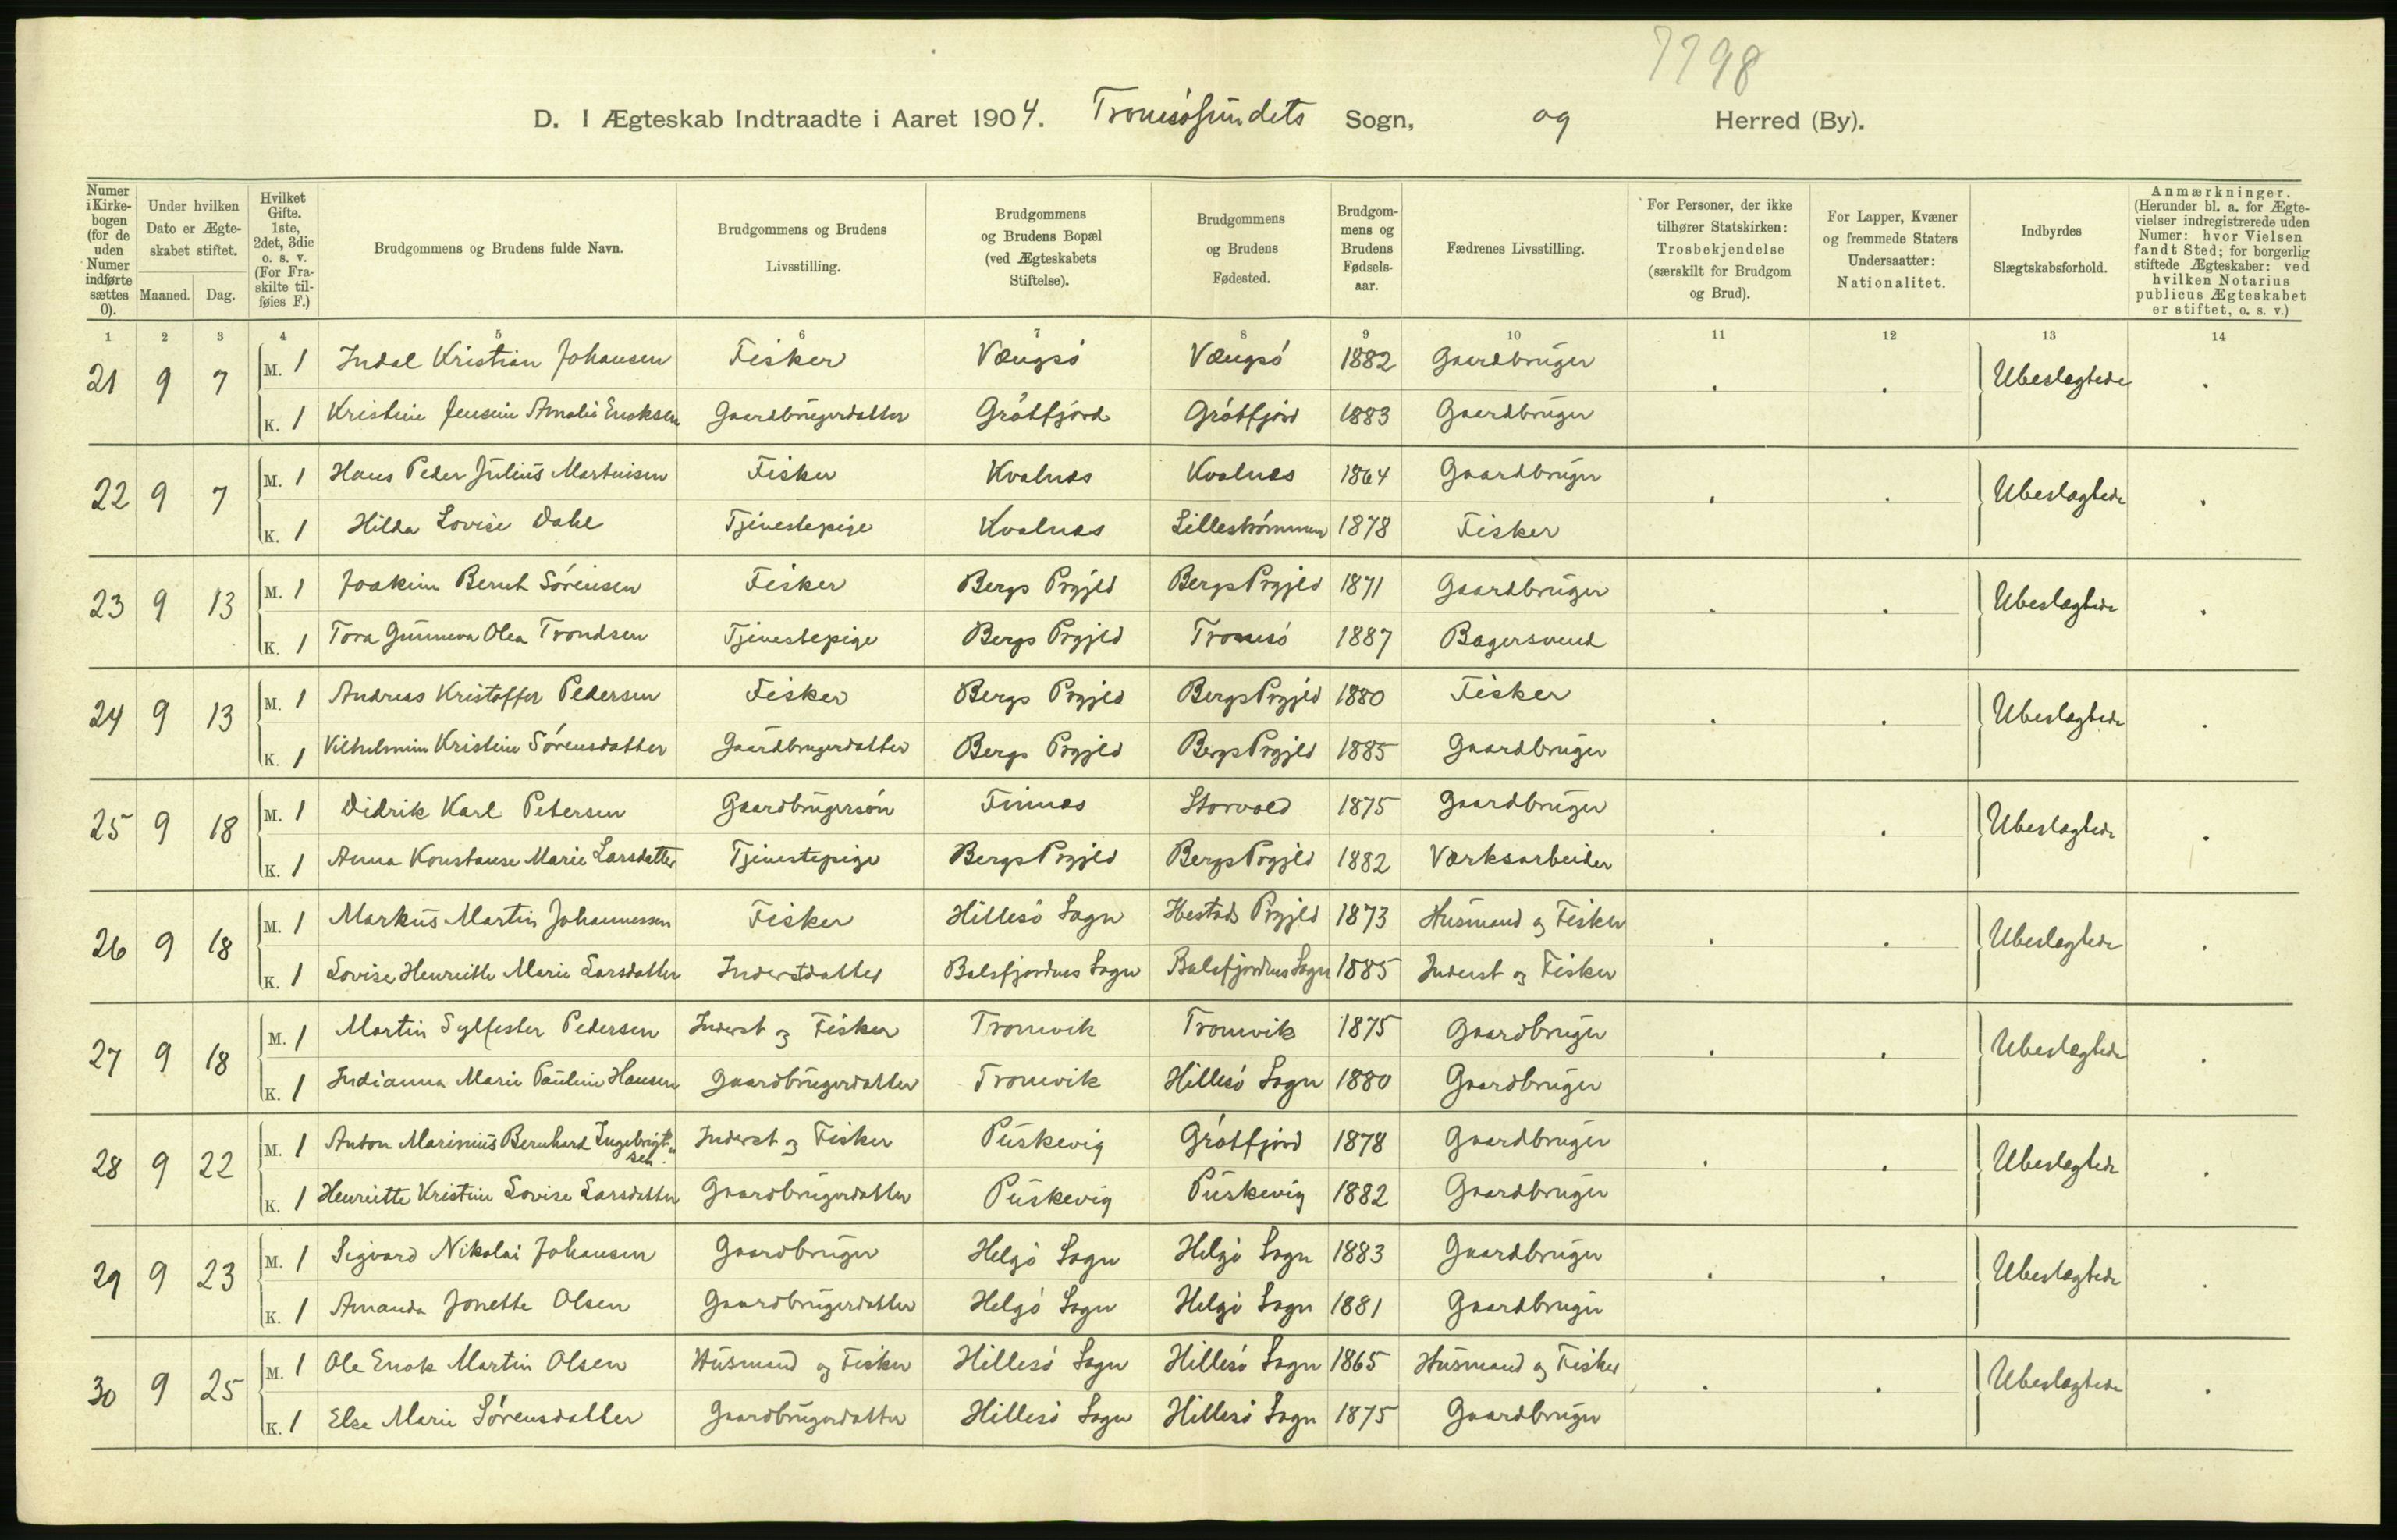 7798
D. I Ægteskab Indtraadte i Aaret 1904. Tromsøsundets Sogn, og Herred (By).
Numer i Kirkebogen (for de uden Numer indførte sættes 0).
Under hvilken Dato er Ægteskabet stiftet.
Maaned. Dag.
Hvilket Gifte. 1ste, 2det, 3die o. s. v. (For Fraskilte tilføies F.)
Brudgommens og Brudens fulde Navn.
Brudgommens og Brudens Livsstilling.
Brudgommens og Brudens Bopæl (ved Ægteskabets Stiftelse).
Brudgommens og Brudens Fødested.
Brudgommens og Brudens Fødselsaar.
Fædrenes Livsstilling.
For Personer, der ikke tilhører Statskirken: Trosbekjendelse (særskilt for Brudgom og Brud).
For Lapper, Kvæner og fremmede Staters Undersaatter: Nationalitet.
Indbyrdes Slægtskabsforhold.
Anmærkninger. (Herunder bl. a. for Ægtevielser indregistrerede uden Numer: hvor Vielsen fandt Sted; for borgerlig stiftede Ægteskaber: ved hvilken Notarius publicus Ægteskabet er stiftet, o. s. v.)
1 2 3 4 5 6 7 8 9 10 11 12 13 14
21 9 7 M. 1 Indal Kristian Johansen Fisker Vængsø Vængsø 1882 Gaardbruger . . Ubeslægtede .
K. 1 Kristine Jensine Amalie Enoksen Gaardbrugerdatter Grøtfjord Grøtfjord 1883 Gaardbruger
22 9 7 M. 1 Hans Peder Julius Martinisen Fisker Kvalnæs Kvalnæs 1864 Gaardbruger . . Ubeslægtede .
K. 1 Hilda Lovise Dahl Tjenestepige Kvalnæs Lillestrømmen 1878 Fisker
23 9 13 M. 1 Joakim Bernt Sørensen Fisker Bergs Prgjld Bergs Prgjld 1871 Gaardbruger . . Ubeslægtede .
K. 1 Tora Gunneva Olea Trondsen Tjenestepige Bergs Prgjld Tromsø 1887 Bagersvend
24 9 13 M. 1 Andreas Kristoffer Pedersen Fisker Bergs Prgjld Bergs Prgjld 1880 Fisker . . Ubeslægtede .
K. 1 Vilhelmine Kristine Sørensdatter Gaardbrugerdatter Bergs Prgjld Bergs Prgjld 1885 Gaardbruger
25 9 18 M. 1 Didrik Karl Petersen Gaardbrugersøn Finnæs Storvold 1875 Gaardbruger . . Ubeslægtede .
K. 1 Anna Konstanse Marie Larsdatter Tjenestepige Bergs Prgjld Bergs Prgjld 1882 Værksarbeider
26 9 18 M. 1 Markus Martin Johannessen Fisker Hillesø Sogn Ibestads Prgjld 1873 Husmand og Fisker . . Ubeslægtede .
K. 1 Lovise Henriette Marie Larsdatter Inderstdatter Balsfjordens Sogn Balsfjordens Sogn 1885 Inderst og Fisker
27 9 18 M. 1 Martin Sylfester Pedersen Inderst og Fisker Tromvik Tromvik 1875 Gaardbruger . . Ubeslægtede .
K. 1 Indianna Marie Pauline Hansen Gaardbrugerdatter Tromvik Hillesø Sogn 1880 Gaardbruger
28 9 22 M. 1 Anton Marinius Bernhard Ingebrigtsen Inderst og Fisker Puskevig Grøtfjord 1878 Gaardbruger . . Ubeslægtede .
K. 1 Henriette Kristine Lovise Larsdatter Gaardbrugerdatter Puskevig Puskevig 1882 Gaardbruger
29 9 23 M. 1 Sigvard Nikolai Johansen Gaardbruger Helgø Sogn Helgø Sogn 1883 Gaardbruger . . Ubeslægtede .
K. 1 Amanda Jonette Olsen Gaardbrugerdatter Helgø Sogn Helgø Sogn 1881 Gaardbruger
30 9 25 M. 1 Ole Enok Martin Olsen Husmand og Fisker Hillesø Sogn Hillesø Sogn 1865 Husmand og Fisker . . Ubeslægtede .
K. 1 Else Marie Sørensdatter Gaardbrugerdatter Hillesø Sogn Hillesø Sogn 1875 Gaardbruger